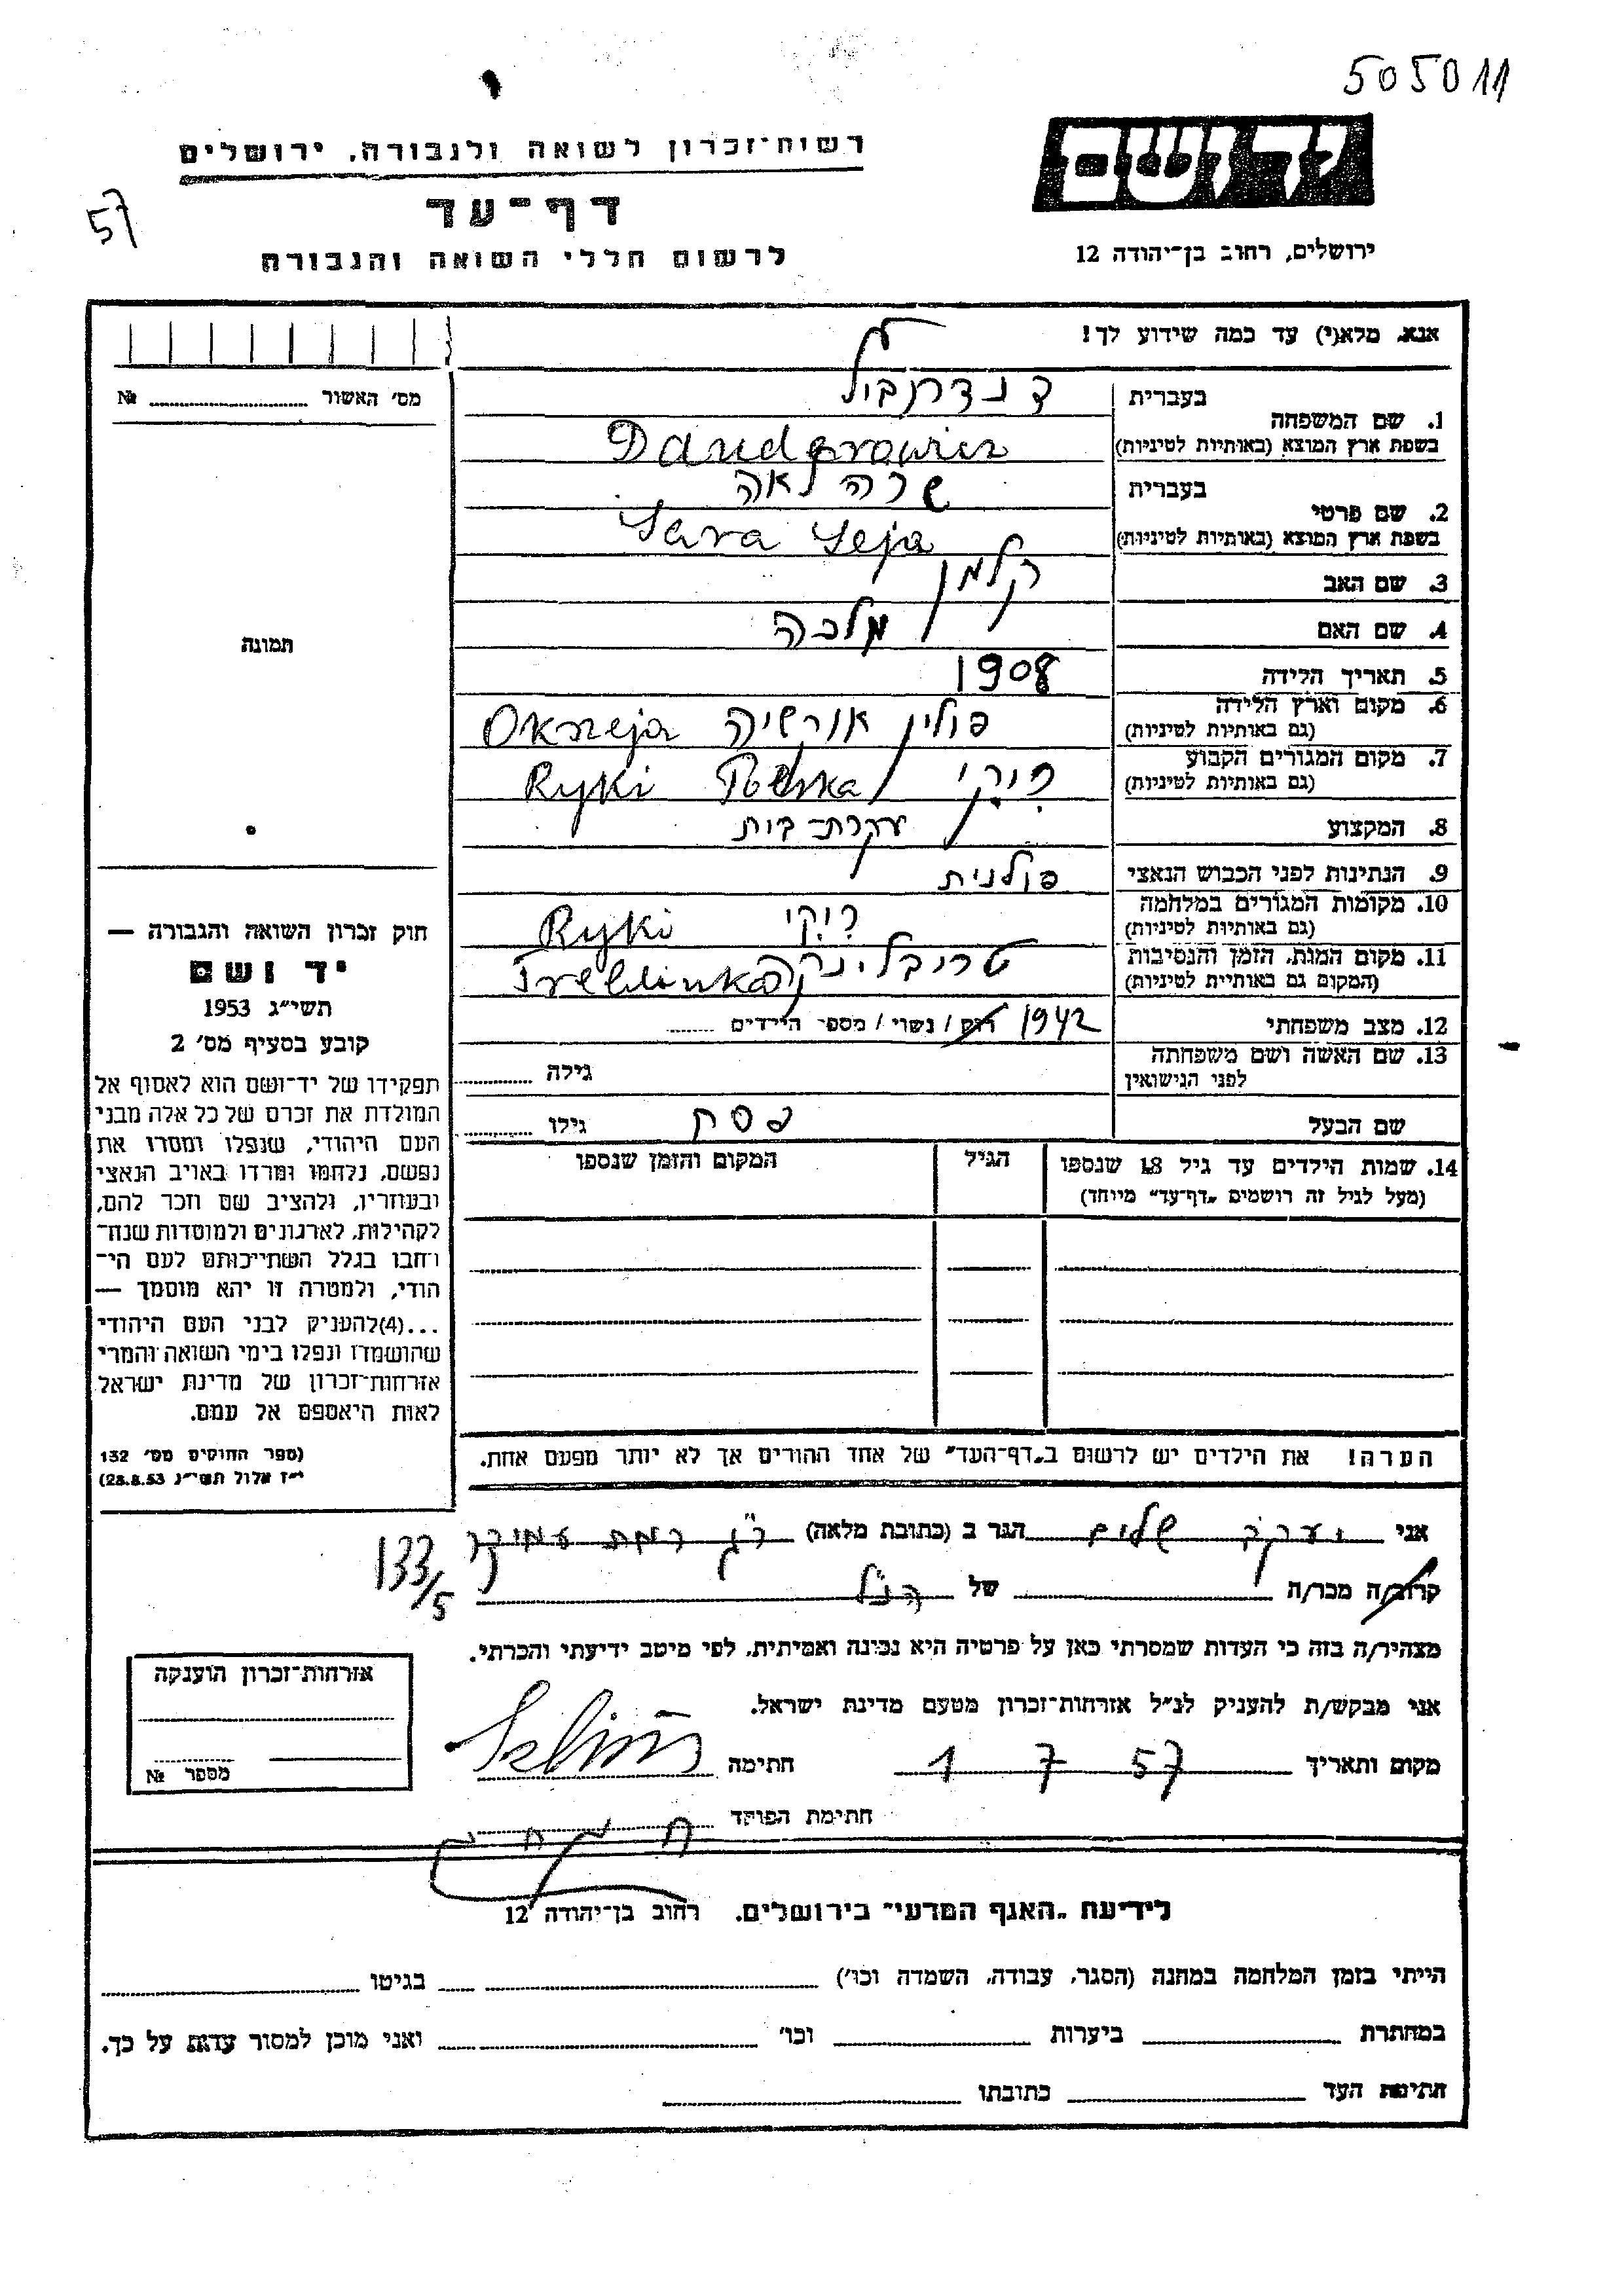 505011
יד ושם
רשות־זכרון לשואה ולגבורה, ירושלים
דף־עד
57
לרשום חללי השואה והגבורה
ירושלים, רחוב בן־יהודה 12
אנא, מלא(י) עד כמה שידוע לך!
מס׳ האשור № 
תמונה
1. שם המשפחה בעברית
בשפת ארץ המוצא (באותיות לטיניות) Danderowicz
2. שם פרטי בעברית שרה לאה
בשפת ארץ המוצא (באותיות לטיניות) Sara Leja
3. שם האב קלמן
4. שם האם מלכה
5. תאריך הלידה 1908
6. מקום וארץ הלידה (גם באותיות לטיניות) פולין Okrzeja
7. מקום המגורים הקבוע (גם באותיות לטיניות) ריקי Polska Ryki
8. המקצוע עקרת־בית
9. הנתינות לפני הכבוש הנאצי פולנית
10. מקומות המגורים במלחמה (גם באותיות לטיניות) ריקי Ryki
11. מקום המות, הזמן והנסיבות (המקום גם באותיות לטיניות) טריבלינקה Treblinka
1942
12. מצב משפחתי רוק / נשוי / מספר הילדים
13. שם האשה ושם משפחתה לפני הנישואין גילה
שם הבעל פסח גילו
14. שמות הילדים עד גיל 18 שנספו הגיל המקום והזמן שנספו
(מעל לגיל זה רושמים „דף־עד״ מיוחד)
הערה! את הילדים יש לרשום ב„דף־העד״ של אחד ההורים אך לא יותר מפעם אחת.
חוק זכרון השואה והגבורה —
יד ושם
תשי״ג 1953
קובע בסעיף מס׳ 2
תפקידו של יד־ושם הוא לאסוף אל
המולדת את זכרם של כל אלה מבני
העם היהודי, שנפלו ומסרו את
נפשם, נלחמו ומרדו באויב הנאצי
ובעוזריו, ולהציב שם וזכר להם,
לקהילות, לארגונים ולמוסדות שנח־
רבו בגלל השתייכותם לעם הי־
הודי, ולמטרה זו יהא מוסמך —
...(4)להעניק לבני העם היהודי
שהושמדו ונפלו בימי השואה והמרי
אזרחות־זכרון של מדינת ישראל
לאות היאספם אל עמם.
(ספר החוקים מס׳ 132
י״ז אלול תשי״ג 28.8.53)
אני יעקב שלום הגר ב (כתובת מלאה) ר״ג רמת עמידר
133/5
קרוב/ה מכר/ה של הנ״ל
מצהיר/ה בזה כי העדות שמסרתי כאן על פרטיה היא נכונה ואמיתית, לפי מיטב ידיעתי והכרתי.
אני מבקש/ת להעניק לנ״ל אזרחות־זכרון מטעם מדינת ישראל.
מקום ותאריך 1 7 57 חתימה
חתימת הפוקד
אזרחות־זכרון הוענקה
מספר №
לידיעת „האגף המדעי״ בירושלים, רחוב בן־יהודה 12
הייתי בזמן המלחמה במחנה (הסגר, עבודה, השמדה וכו׳) בגיטו
במחתרת ביערות וכו׳ ואני מוכן למסור עדות על כך.
חתימת העד כתובתו